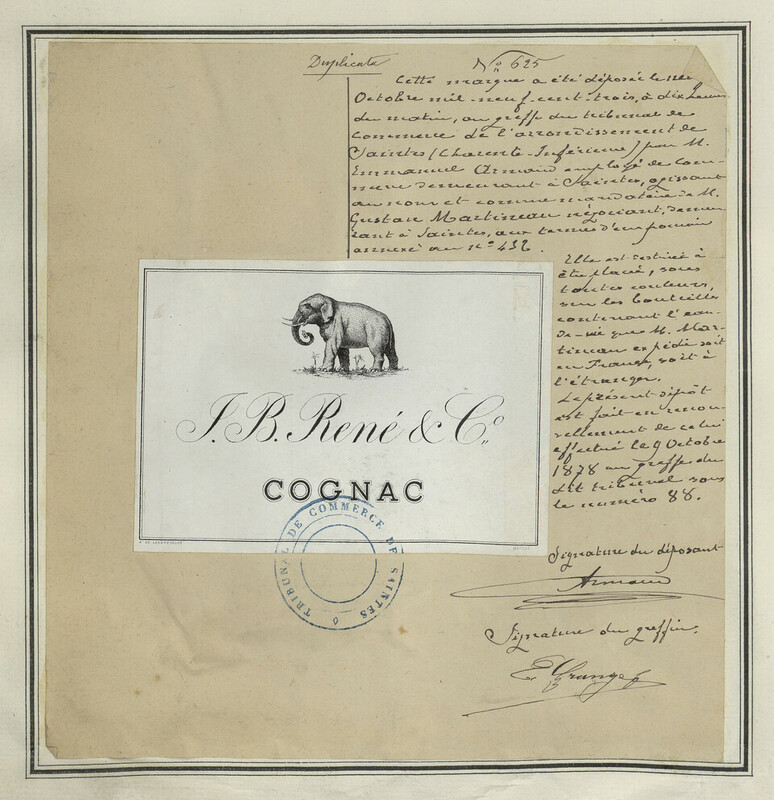 Duplicata
No 625
Cette marque a été déposée le 1er
Octobre mil-neuf-cent-trois, à dix heures
du matin, au greffe du tribunal de
Commerce de l'arrondissement de
Saintes (Charente-Inférieure) par M.
Emmanuel Armand employé de Com-
merce demeurant à Saintes, agissant
au nom et comme mandataire de M.
Gustave Martineau négociant, demeu-
rant à Saintes, aux termes d'un pouvoir
annexé au no 432.
Elle est destinée à
être placée, sous
toutes couleurs,
sur les bouteilles
contenant l'eau-
de-vie que M. Mar-
tineau expédie soit
en France, soit à
l'étranger.
Le présent dépôt
est fait en renou-
vellement de celui
effectué le 9 Octobre
1878 au greffe du
dit tribunal sous
le numéro 88.
J.B. René & Co.
COGNAC
TRIBUNAL DE COMMERCE DE SAINTES
Signature du déposant
Armand
Signature du greffier.
E Grange